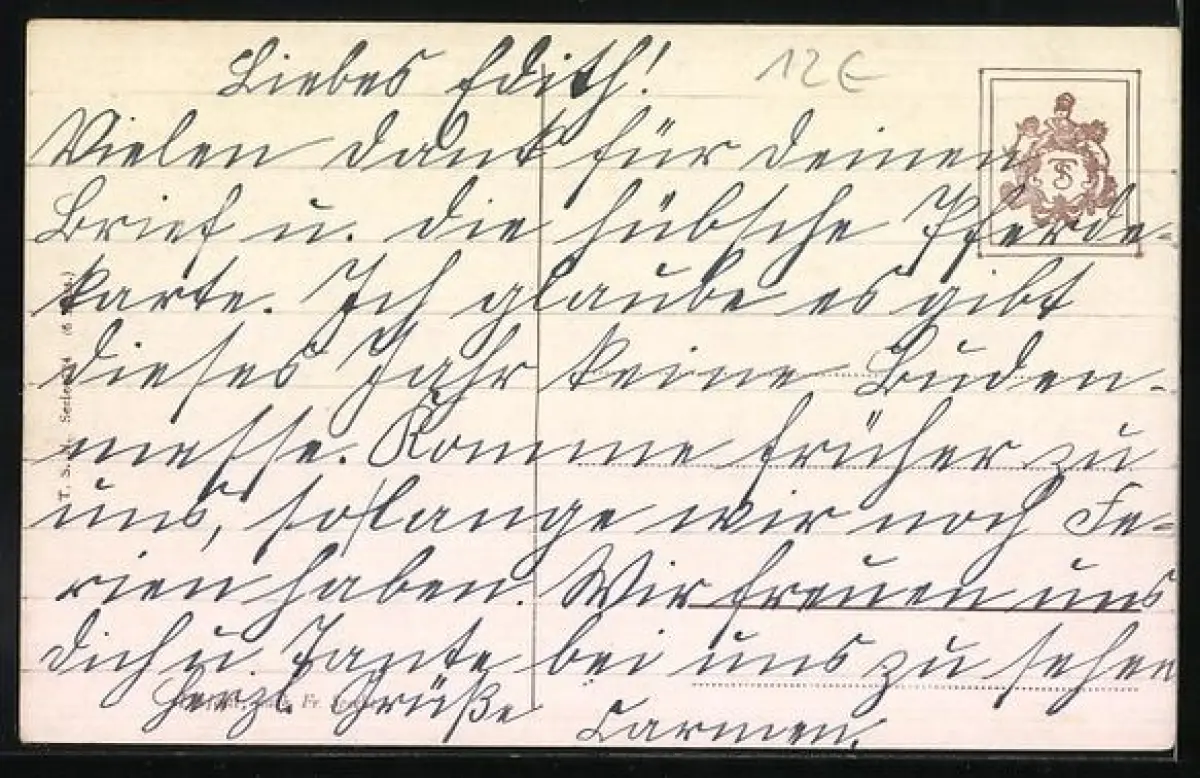 Liebes Edith!
12€
Vielen Dank für deinen
TS
Brief u. die hübsche Pferde-
karte. Ich glaube es gibt
dieses Jahr keine Buden-
messe. Komme früher zu
uns, solange wir noch Fe-
rien haben. Wir freuen uns
dich u. Tante bei uns zu sehen
Herzl. Grüße
Carmen.
T. S. N. Serie